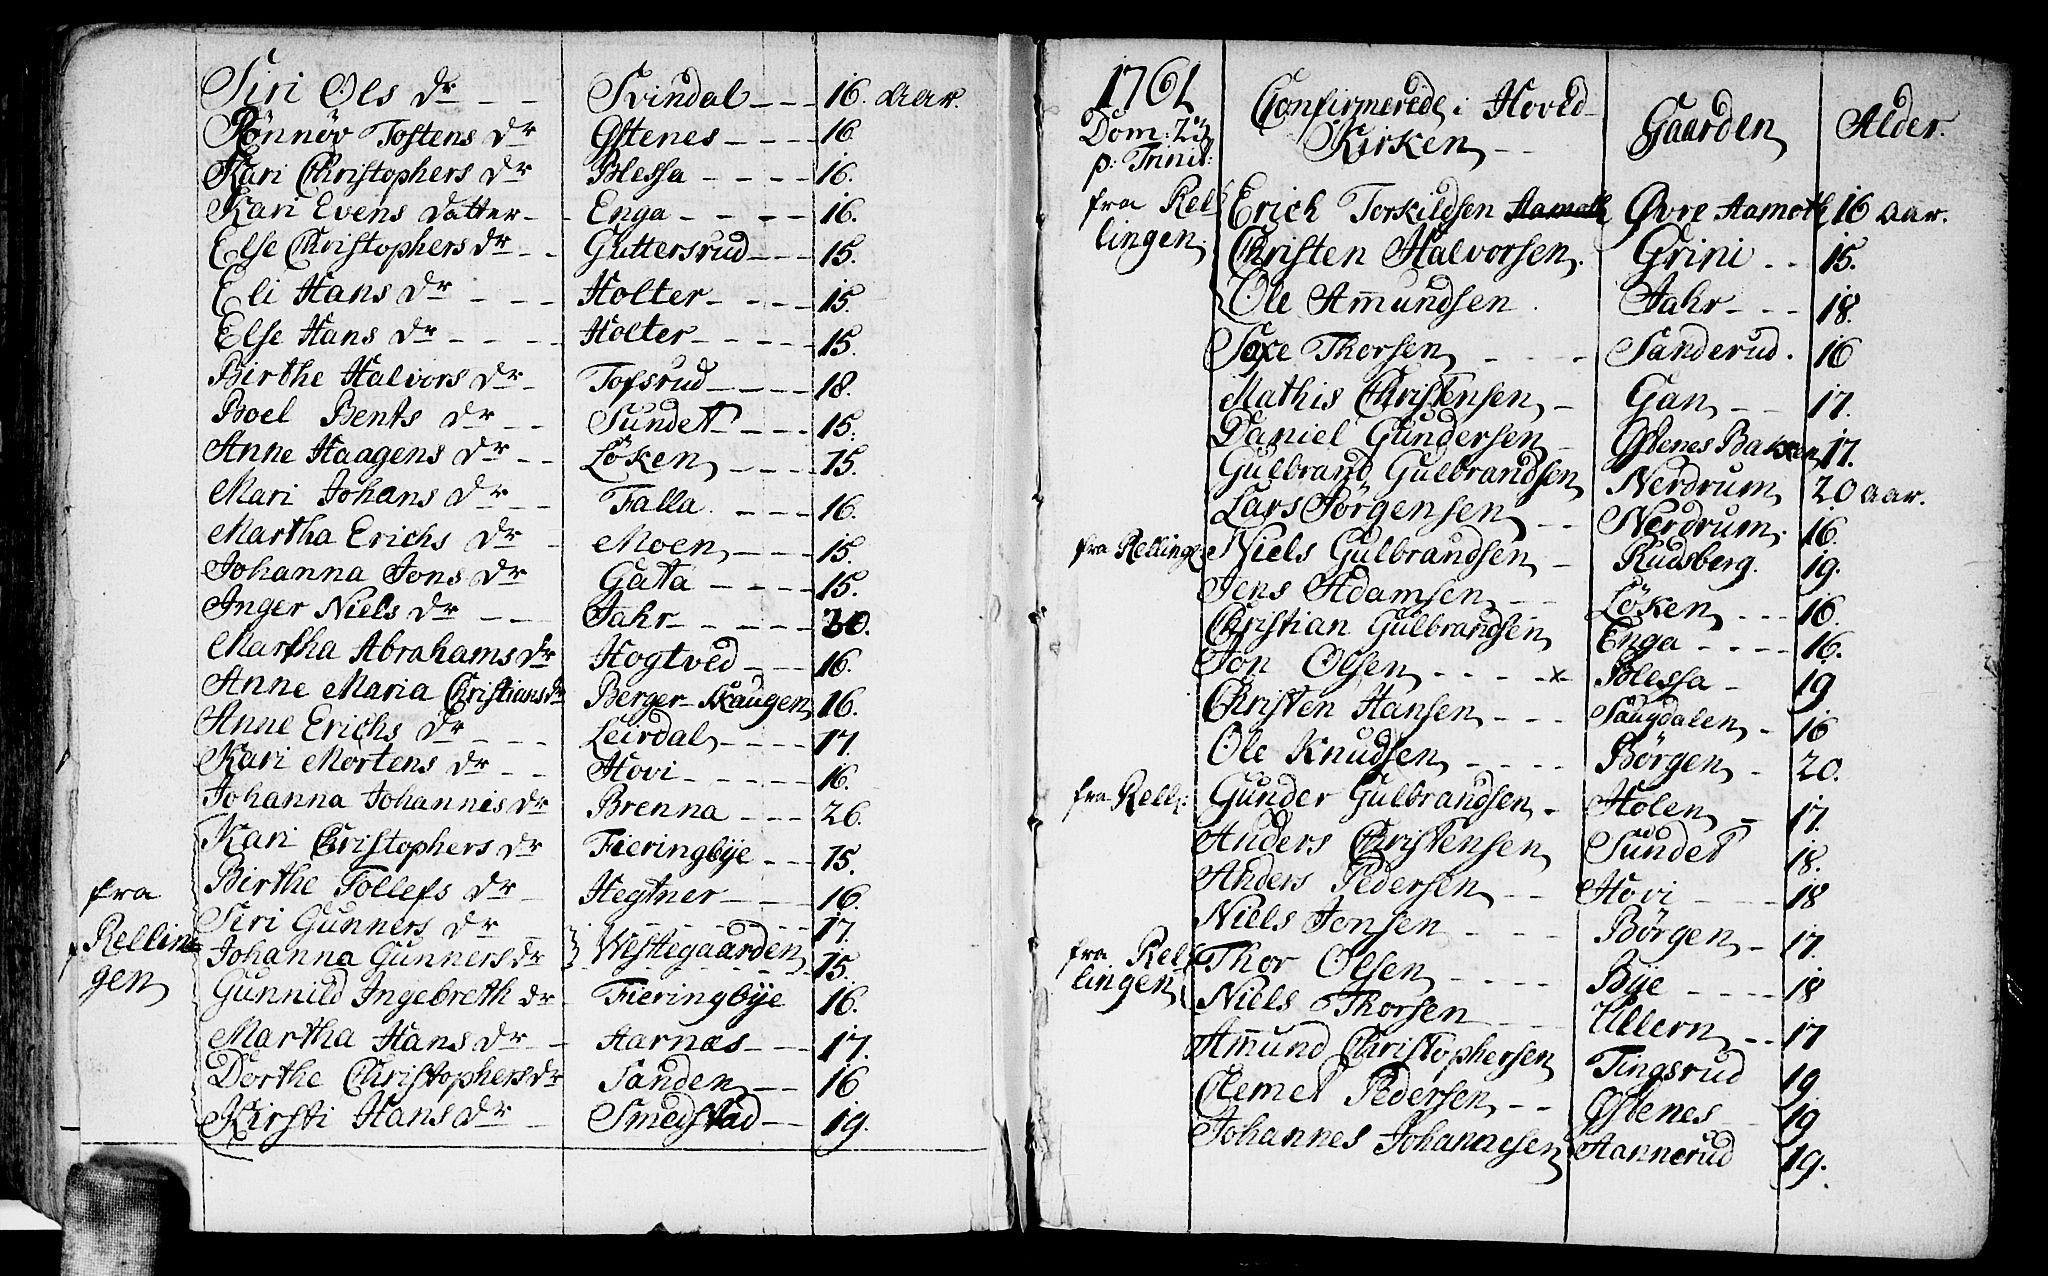 Siri Ols Dr - - - Svindal - - - 16. Aar.
Rönnöv Tostens Dr Østenes - - - 16
Kari Christophers Dr Blessa - - - - 16.
Kari Evens Datter - - Enga - - - - 16.
Else Christophers Dr - - Guttersrud - - - 15.
Eli Hans Dr - - - Holter - - - - 15.
Else Hans Dr - - - - Holter - - - - - 15.
Birthe Halvors Dr - Tofsrud - - - - 18.
Boel Bents Dr - - Sundet - - - - 15.
Anne Haagens Dr - - Löken - - - - 15.
Mari Johans Dr - - Falla. - - - - 16.
Martha Erichs Dr - Moen - - - - 15.
Johanna Jons Dr Gata - - - - 15.
Inger Niels Dr - - - Jahr - - - - - 20.
Martha Abrahams Dr Hogtved - - - 16.
Anne Maria Christians Dr Berger-Skaugen 16.
Anne Erichs Dr - - - Leirdal - - - - 17.
Kari Mortens Dr - - Hovi - - - - - 16.
Johanna Johannis Dr Brenna - - - 26.
Kari Christophers Dr Fieringbÿe - - - 15.
Birthe Tollefs Dr - Hegtner - - - - 16.
fra
Siri Gunners Dr - - - - - - - 17.
Rellin
gen
Johanna Gunners Dr } Westegaarden 15.
Gunnild Ingebreth Dr - Fieringbÿe 16.
Martha Hans Dr - - Aarnæs - - - 17.
Dorthe Christophers Dr Sanden - - 16
Kirsti Hans Dr - Smedstad - - 19.
1761
Dom: 23
p: Trinit:
Confirmerede i Hoved-
Kirken - - Gaarden Alder.
fra Rel
lingen
Erich Torkildsen Aamoth Øvre Aamoth 16 Aar.
Christen Halvorsen. Grini - - 15.
Ole Am̄undsen. Jahr - - - 18.
Saxe Thorsen - - - - Sanderud. 16
Mathis Christensen - Gan - - - 17.
Daniel Gundersen - Østenes Bakken 17.
Gulbrand Gulbrandsen Nerdrum 20 Aar.
Lars Jörgensen - - Nerdrum. 16.
fra Rellinge Niels Gulbrandsen - Rudsberg. 19.
Jens Adamsen - - - Löken - - - 16.
Christian Gulbrandsen Enga - - - - 16.
Jon Olsen - - - - x Blessa - 19
Christen Hansen - - - Saugdalen - 16
Ole Knudsen - - - - - Börgen - 20.
fra Rell: Gunder Gulbrandsen - Holen - 17.
Anders Christensen Sundet 18.
Anders Pedersen - - Hovi - - - - 18
Niels Jensen - - - Börgen - 17.
fra Rel
lingen
Thor Olsen - - - - Bÿe - - - - 18
Niels Thorsen - - - Ullern - - 17
Am̄und Christophersen Tingsrud 19
Clemet Pedersen - - Østenes - 19
Johannes Johannesen Hannerud 19.